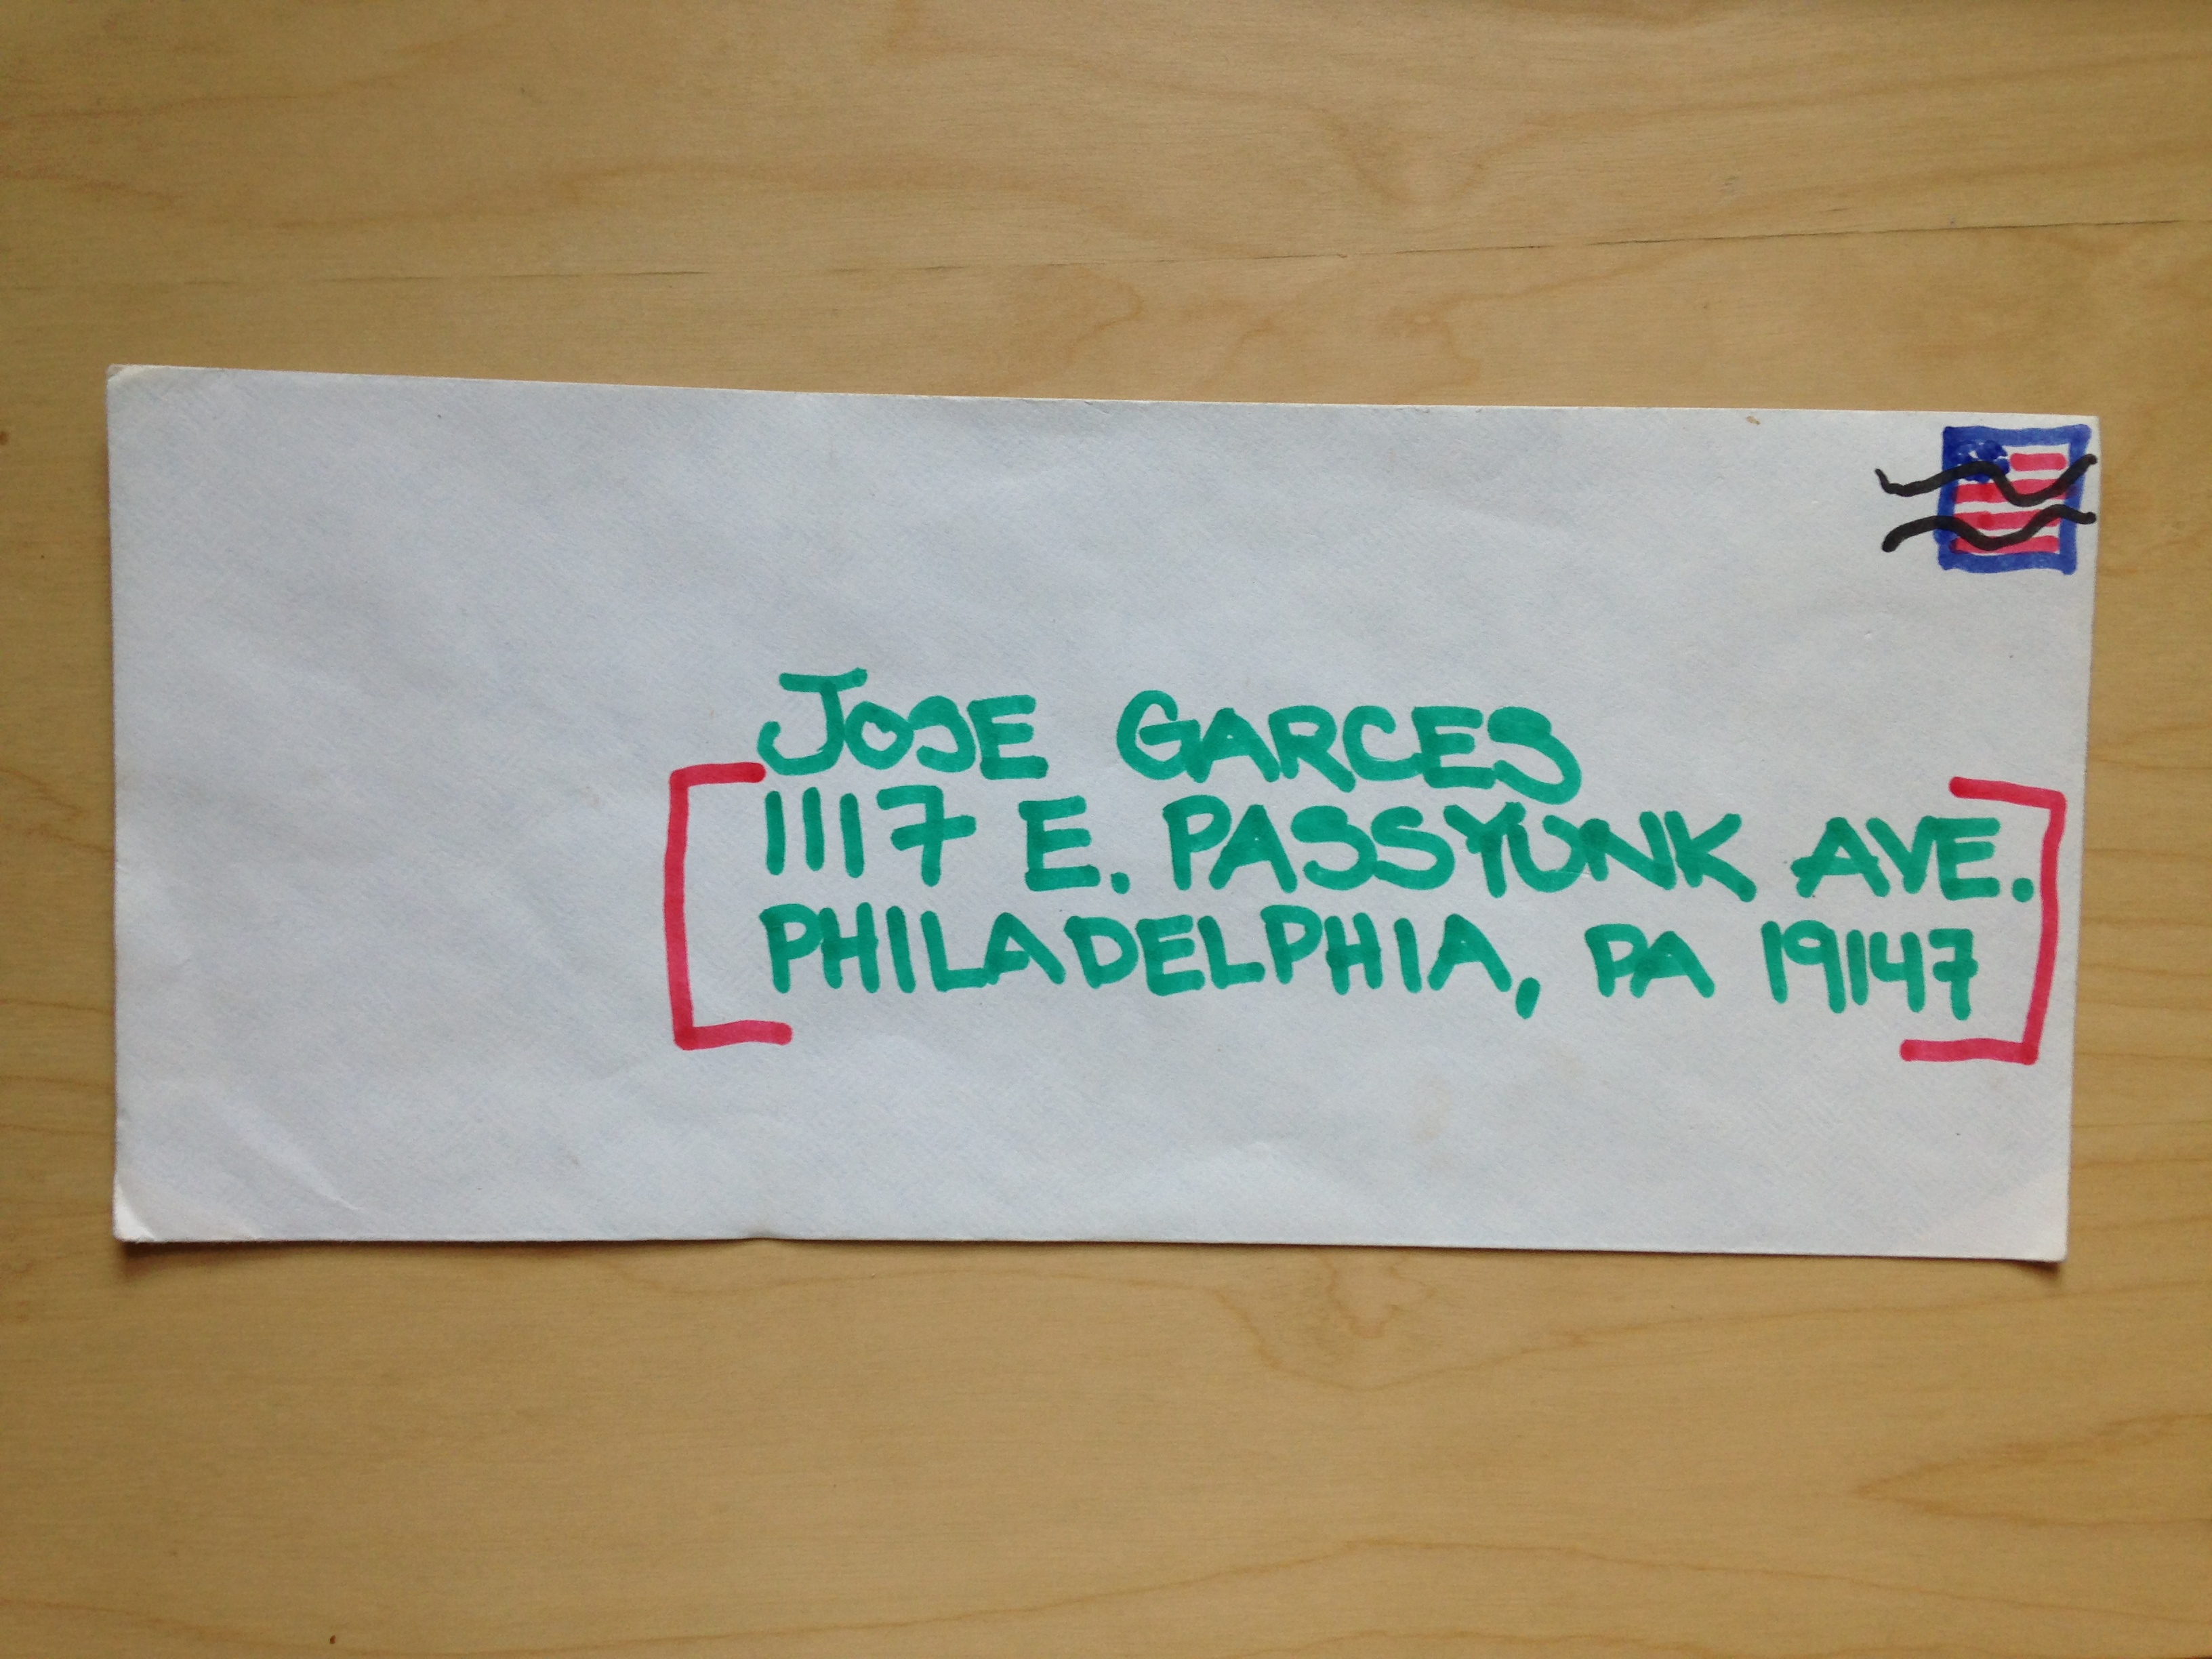 JOSE GARCES
1117 E. PASSYUNK AVE.
PHILADELPHIA, PA 19147